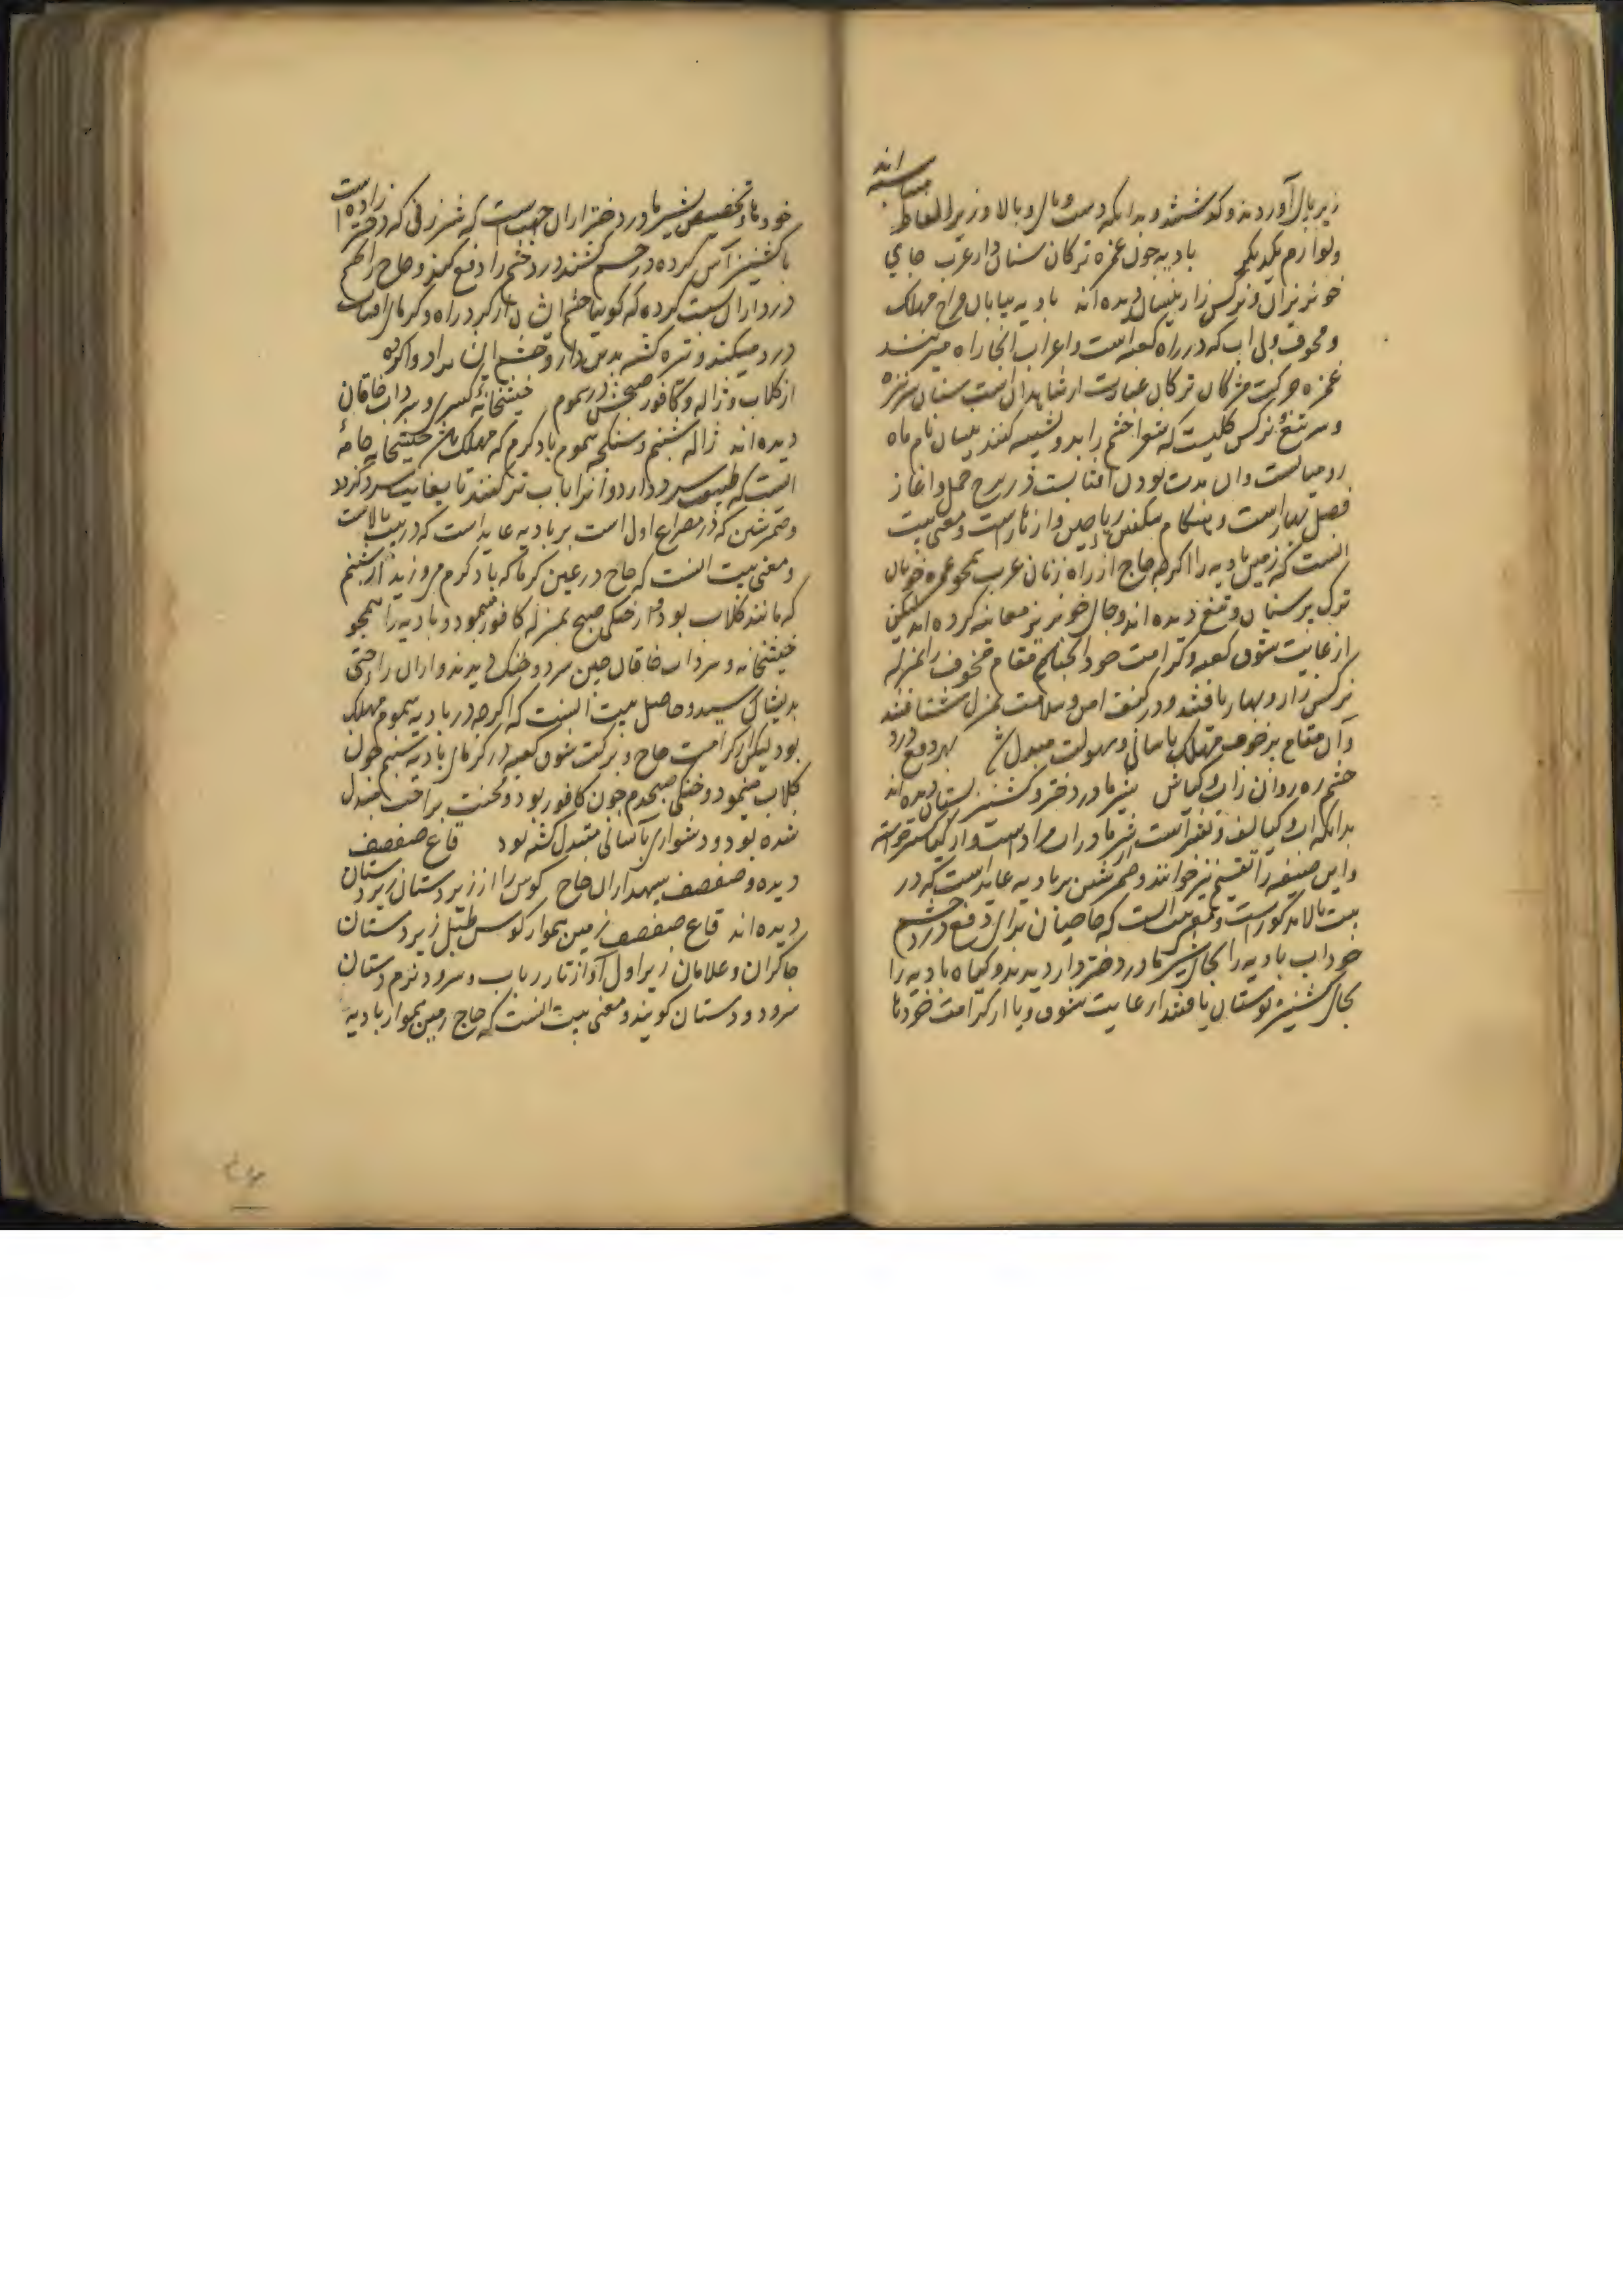 زیر بال آوردند و کد شتند و بدانکه دست و بال و بالا و زیر الفاظ متناسبه اند
ولوازم یکدیگر بادیه چون غمزه ترکان سنان دار عرب جای
خونریزان و نرکس زار نیسان دیده اند بادیه بیابان فراخ مهلک
و مخوف و بی اب که در راه کعبه است و اعراب انجا راه میزنند
غمزه حرکت مژکان ترکان عبارت از شاهدان است سنان سرنیزه
و سر تیغ نرکس کلیست که شعرا چشم را بدو تشبیه کنند نیسان نام ماه
رومیانست وان مدت بودن افتابست در برج حمل و اغاز
فصل بهار است و هنکام شکفتن ریاحین و ازهار است و معنی بیت
انست که زمین بادیه را اکرچه حاج از راه زنان عرب همچو غمزه خوبان
ترک پر سنان و تیغ دیده اند و جای خونریز معاینه کرده اند لیکن
از غایت شوق کعبه و کرامت خود انچنان مقام مخوف را بمنزله
نرکس زار و بهار یافتند و در کنف امن و سلامت بمنزل شتافتند
وان مقام پر خوف مهلک باسانی و سهولت مبدل شد بهر دفع درد
چشم ره روان زاب و کیاش شیر مادر دختر و کشنیز بستان دیده اند
بدانکه اب و کیا لف و نشر است از شیر مادر اب مراد است و از کیا کشنیز خواسته
واین صنعه را تقسیم نیز خوانند و ضمیر شین بر بادیه عاید است که در
بیت بالا مذکور است و معنی بیت انست که حاجیان برای دفع درد چشم
خود اب بادیه را بجای شیر مادر دختر دار دیدند و کیاه بادیه را
بجای کشنیز بوستان یافتند از غایت شوق و یا از کرامت خود ها
خود ها و تخصیص شیر مادر دختر از ان جهت است که شیر زنی که دختر زاده است
با کشنیز آس کرده در چشم کشند درد چشم را دفع کند و حاج را چشم
درد ازان سبب کرده که کوییا چشم ایشان از کرد راه و کرمای افتاب
درد میکند و تیره کشته بدین دارو چشم انان مداوا کرده
از کلاب و ژاله و کافور صبحش در سموم خیشخانه کسری و سرداب خاقان
دیده اند ژاله شبنم و سنکچه سموم باد کرم که مهلک باشد خیشخانه جامه
ایست که طبیعت سرد دارد و انرا باب تر کنند تا بغایت سرد کردد
و ضمیر شین که در مصراع اول است بر بادیه عاید است که در بیت بالاست
و معنی بیت انست که حاج در عین کرما که باد کرم میوزید از شبنم
که مانند کلاب بود و از خنکی صبح بمنزله کافور مینمود و بادیه را همچو
خیشخانه و سرداب خاقان چین سرد و خنک دیدند و ازان راحتی
بدیشان رسید و حاصل بیت اینست که اکرچه در بادیه سموم مهلک
بود لیکن از کرامت حاج و برکت شوق کعبه در کرمای بادیه شبنم چون
کلاب مینمود و خنکی صبحدم چون کافور بود و محنت براحت مبدل
شده بود و دشواری باسانی مبدل کشته بود قاع صفصف
دیده و صفصف سپهداران حاج کوس را از زیر دستان زیر دستان
دیده اند قاع صفصف زمین هموار کوس طبل زیر دستان
چاکران و غلامان زیر اول آواز تار رباب و سرود نرم دستان
سرود و دستان کویند و معنی بیت انست که حاج زمین هموار بادیه